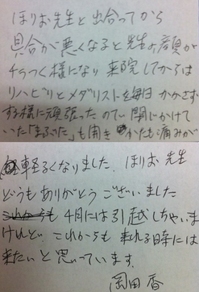 ほりお先生と出合ってから
具合が悪くなると先生の顔が
チラつく様になり来院してからは
リハビリとメダリストを毎日かかさず
する様に頑張ったので閉じかけて
いた「まぶた」も開きかたや痛みが
軽くなりました。ほりお先生
どうもありがとうございました
これからも 4月には引越しちゃいます
けれど、これからも来れる日時には
来たいと思っています。
岡田香